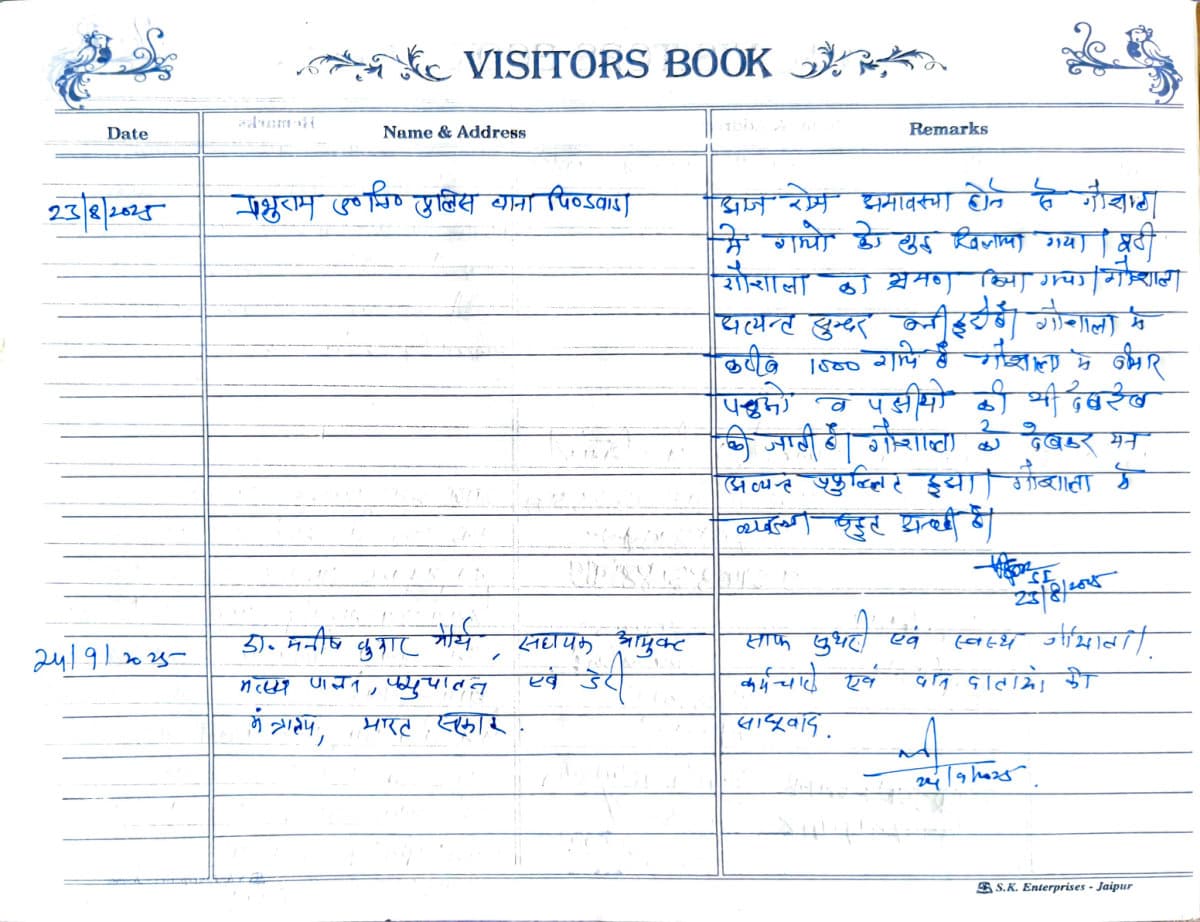 VISITORS BOOK
Date
Name & Address
Remarks
23/8/2025
प्रभुराम उ०नि० पुलिस थाना पिण्डवाडा
आज शनि अमावस्या होने से गौशाला
मे गायो को गुड खिलाया गया।
गौशाला का भ्रमण किया गया। गौशाला
अत्यन्त सुन्दर बनी हुई है। गौशाला मे
करीब 1500 गाये है गौशाला मे बीमार
पशुओ व पक्षीयो की भी देखरेख
की जाती है। गौशाला को देखकर मन
अत्यन्त प्रफुल्लित हुआ। गौशाला मे
व्यवस्था बहुत अच्छी है।
SI
23/8/2025
24/9/2025
डा. मनीष कुमार मौर्य, सहायक आयुक्त
मत्स्य पालन, पशुपालन एवं डेरी
मंत्रालय, भारत सरकार.
साफ सुथरी एवं स्वस्थ गौमाता।
कर्मचारी एवं दान दाताओं को
साधुवाद.
24/9/2025.
S.K. Enterprises - Jaipur